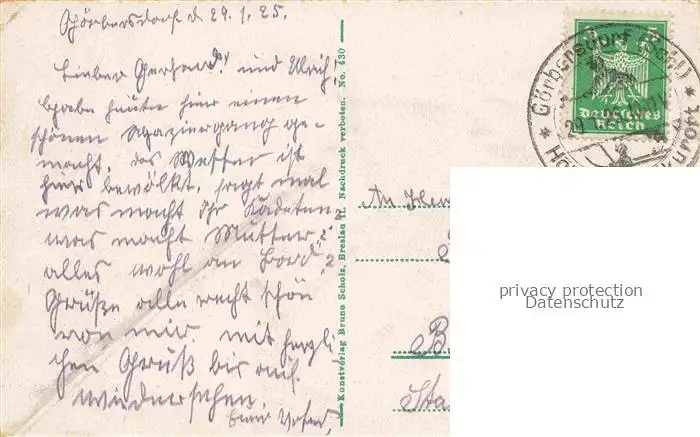 Görbersdorf d. 29.1.25.
Lieber Gerhard! und Ulrich!
habe heute hier einen
schönen Spaziergang ge-
macht, das Wetter ist
hier bewölkt, sagt mal
was macht Ihr Kadetten?
was macht Mutter?
alles wohl an Bord?
Grüße alle recht schön
von mir. mit herzli-
chen Gruß bis auf
wiedersehen.
Euer Vater.
Kunstverlag Bruno Scholz, Breslau II. Nachdruck verboten. No. 430
Görbersdorf
29
5
5
Deutsches
Reich
An
B
privacy protection
Datenschutz